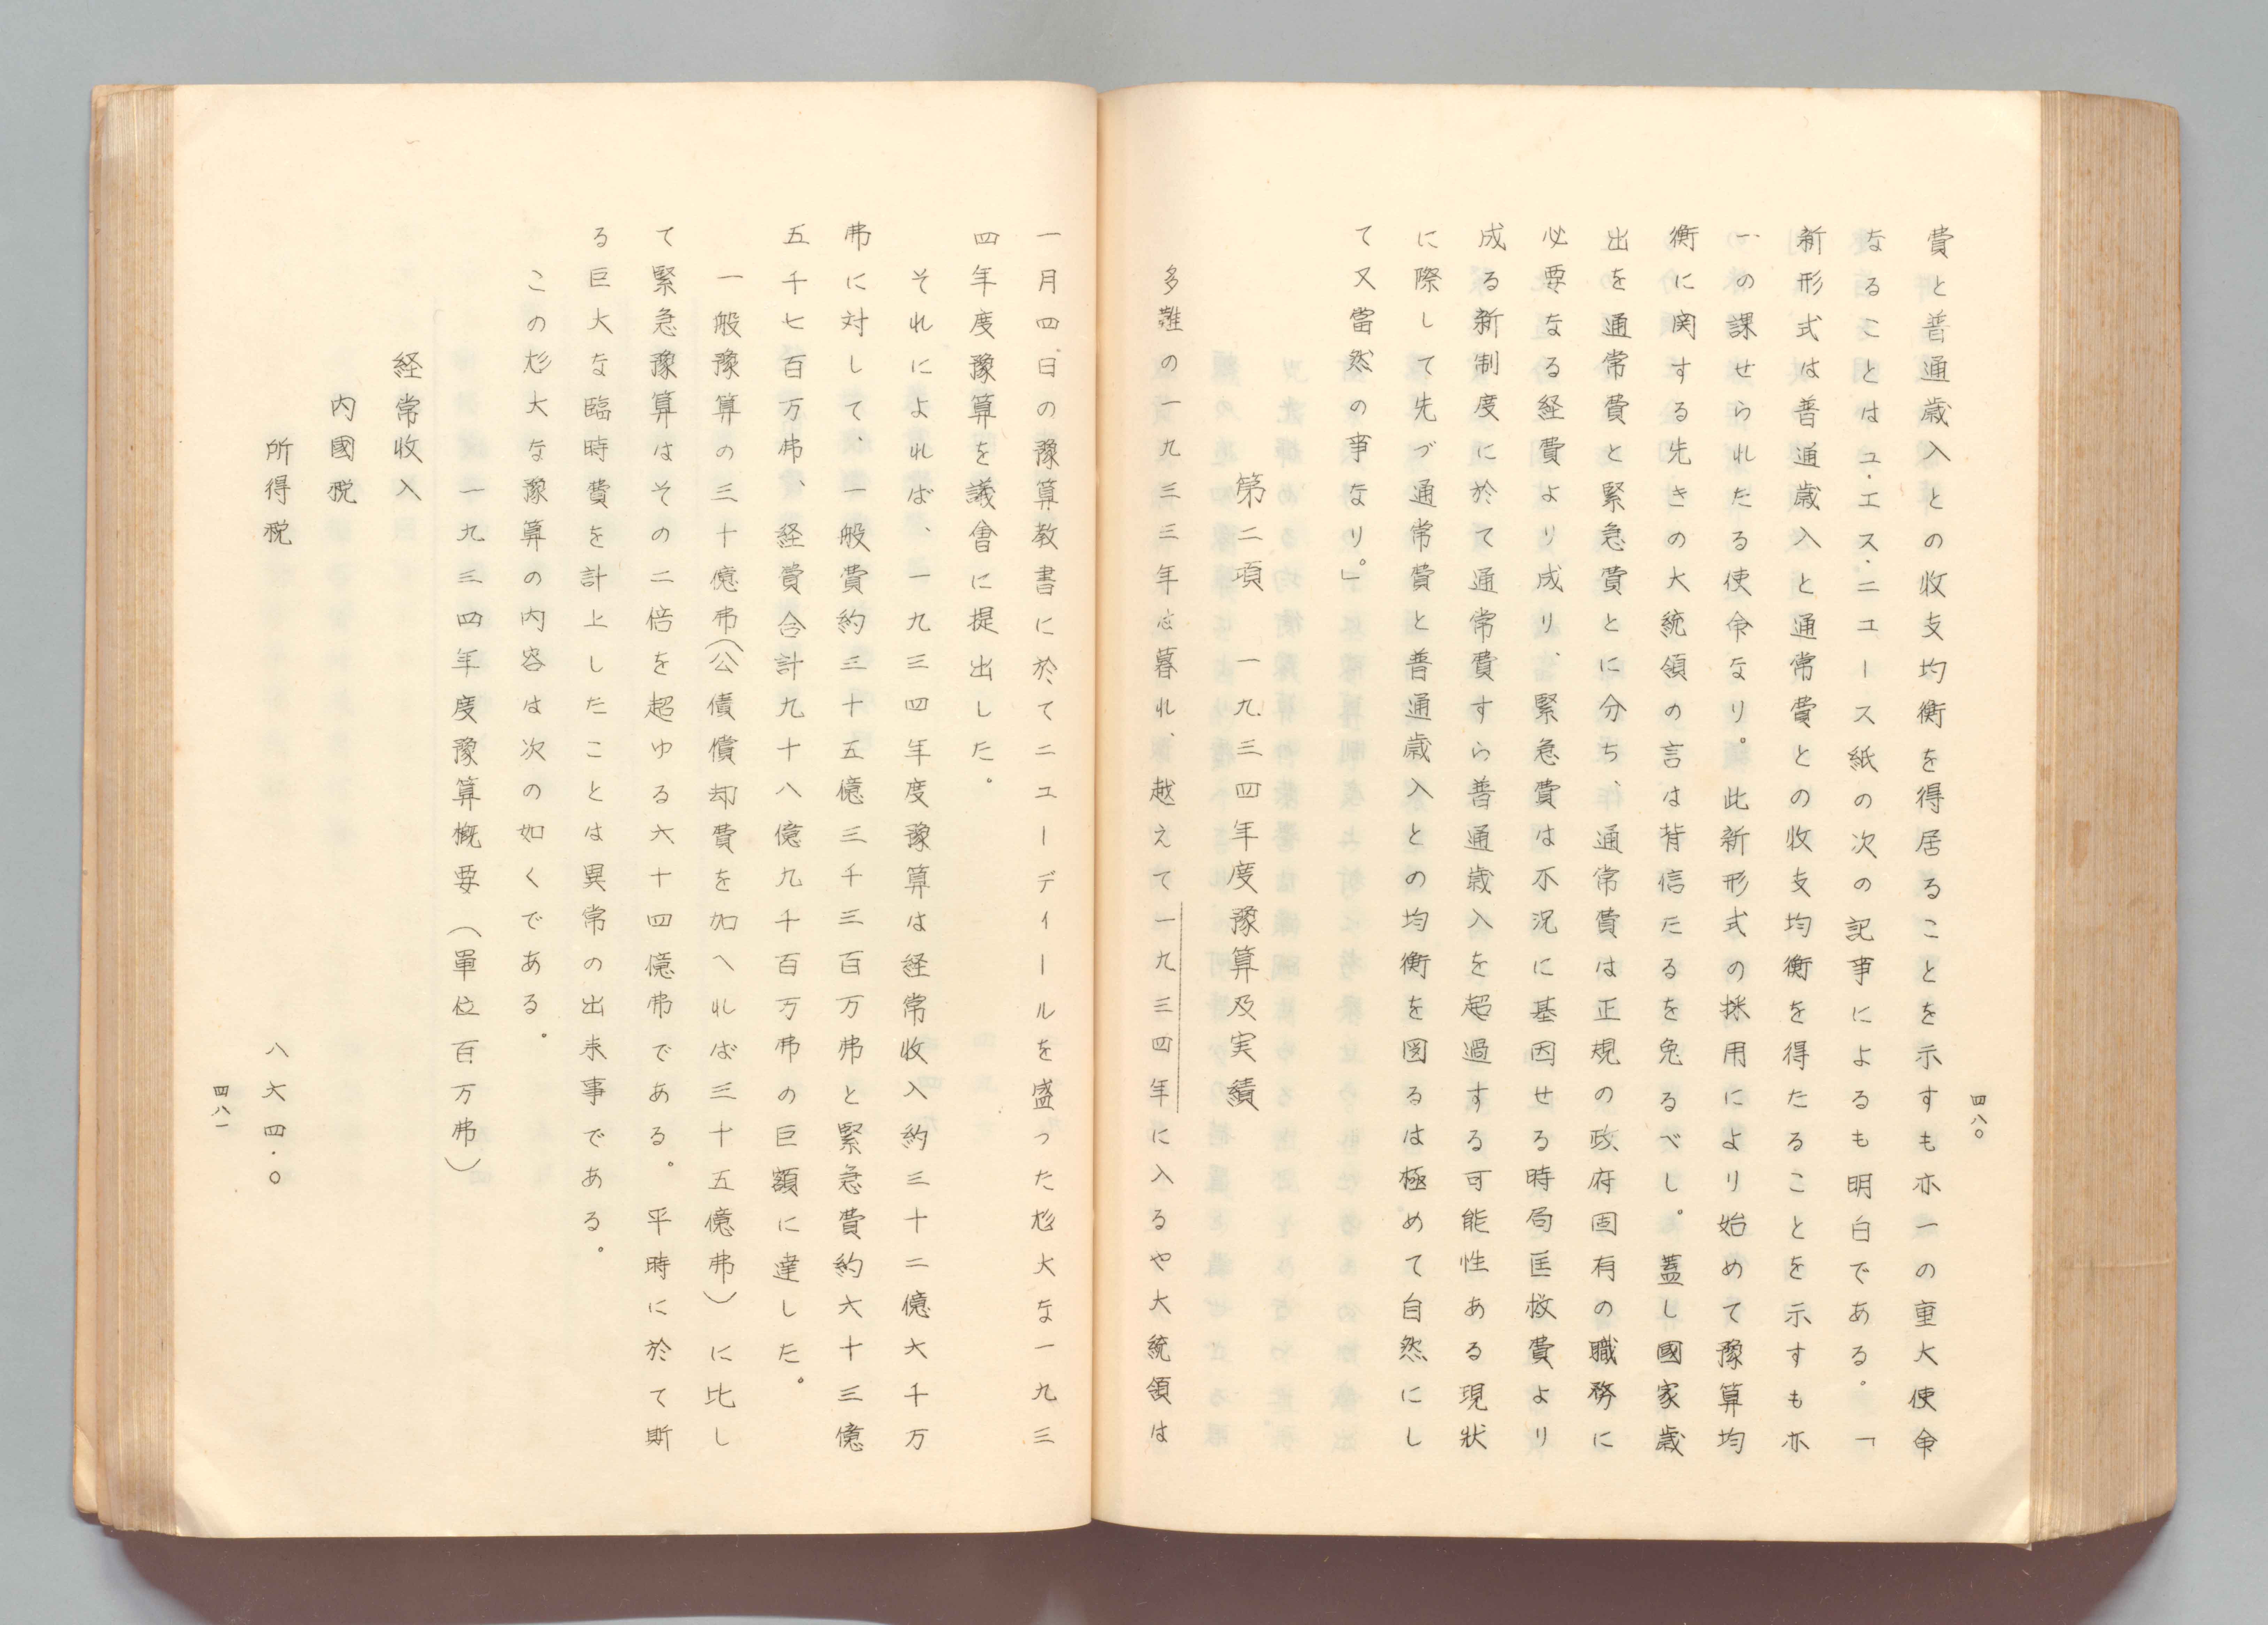 四八〇
費と普通歳入との收支均衡を得居ることを示すも亦一の重大使命
なることはユ・エス・ニユース紙の次の記事によるも明白である。「
新形式は普通歳入と通常費との收支均衡を得たることを示すも亦
一の課せられたる使命なり。此新形式の採用により始めて豫算均
衡に関する先きの大統領の言は背信たるを免るべし。蓋し國家歳
出を通常費と緊急費とに分ち、通常費は正規の政府固有の職務に
必要なる経費より成り、緊急費は不況に基因せる時局匡救費より
成る新制度に於て通常費すら普通歳入を超過する可能性ある現状
に際して先づ通常費と普通歳入との均衡を圖るは極めて自然にし
て又當然の事なり。」
第二項 一九三四年度豫算及実績
多難の一九三三年も暮れ、越えて一九三四年に入るや大統領は
一月四日の豫算教書に於てニユーデイールを盛つた尨大な一九三
四年度豫算を議會に提出した。
それによれば、一九三四年度豫算は経常收入約三十二億六千万
弗に対して、一般費約三十五億三千三百万弗と緊急費約六十三億
五千七百万弗、経費合計九十八億九千百万弗の巨額に達した。
一般豫算の三十億弗(公債償却費を加へれば三十五億弗)に比し
て緊急豫算はその二倍を超ゆる六十四億弗である。平時に於て斯
る巨大な臨時費を計上したことは異常の出来事である。
この尨大な豫算の内容は次の如くである。
一九三四年度豫算概要(單位百万弗)
経常收入
内國税
所得税 八六四・〇
四八一